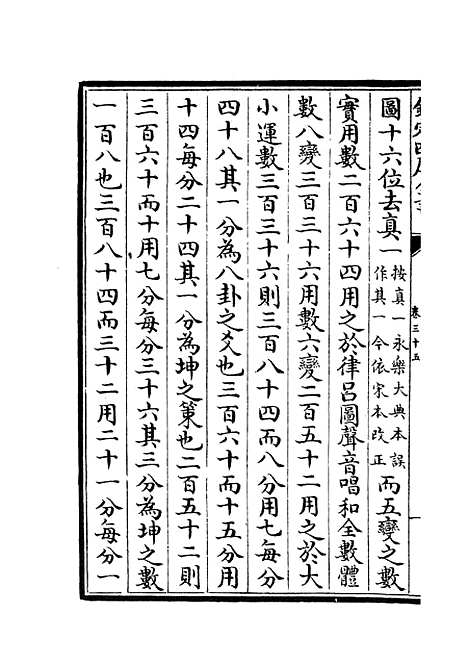 卷三十五
圖十六位去真一按真一永樂大典本誤作其一今依宋本改正而五變之數
實用數二百六十四用之於律呂圖聲音唱和全數體
數八變三百三十六用數六變二百五十二用之於大
小運數三百三十六則三百八十四而八分用七每分
四十八其一分為八卦之爻也三百六十而十五分用
十四每分二十四其一分為坤之策也二百五十二則
三百六十而十用七分每分三十六其三分為坤之數
一百八也三百八十四而三十二用二十一分每分一